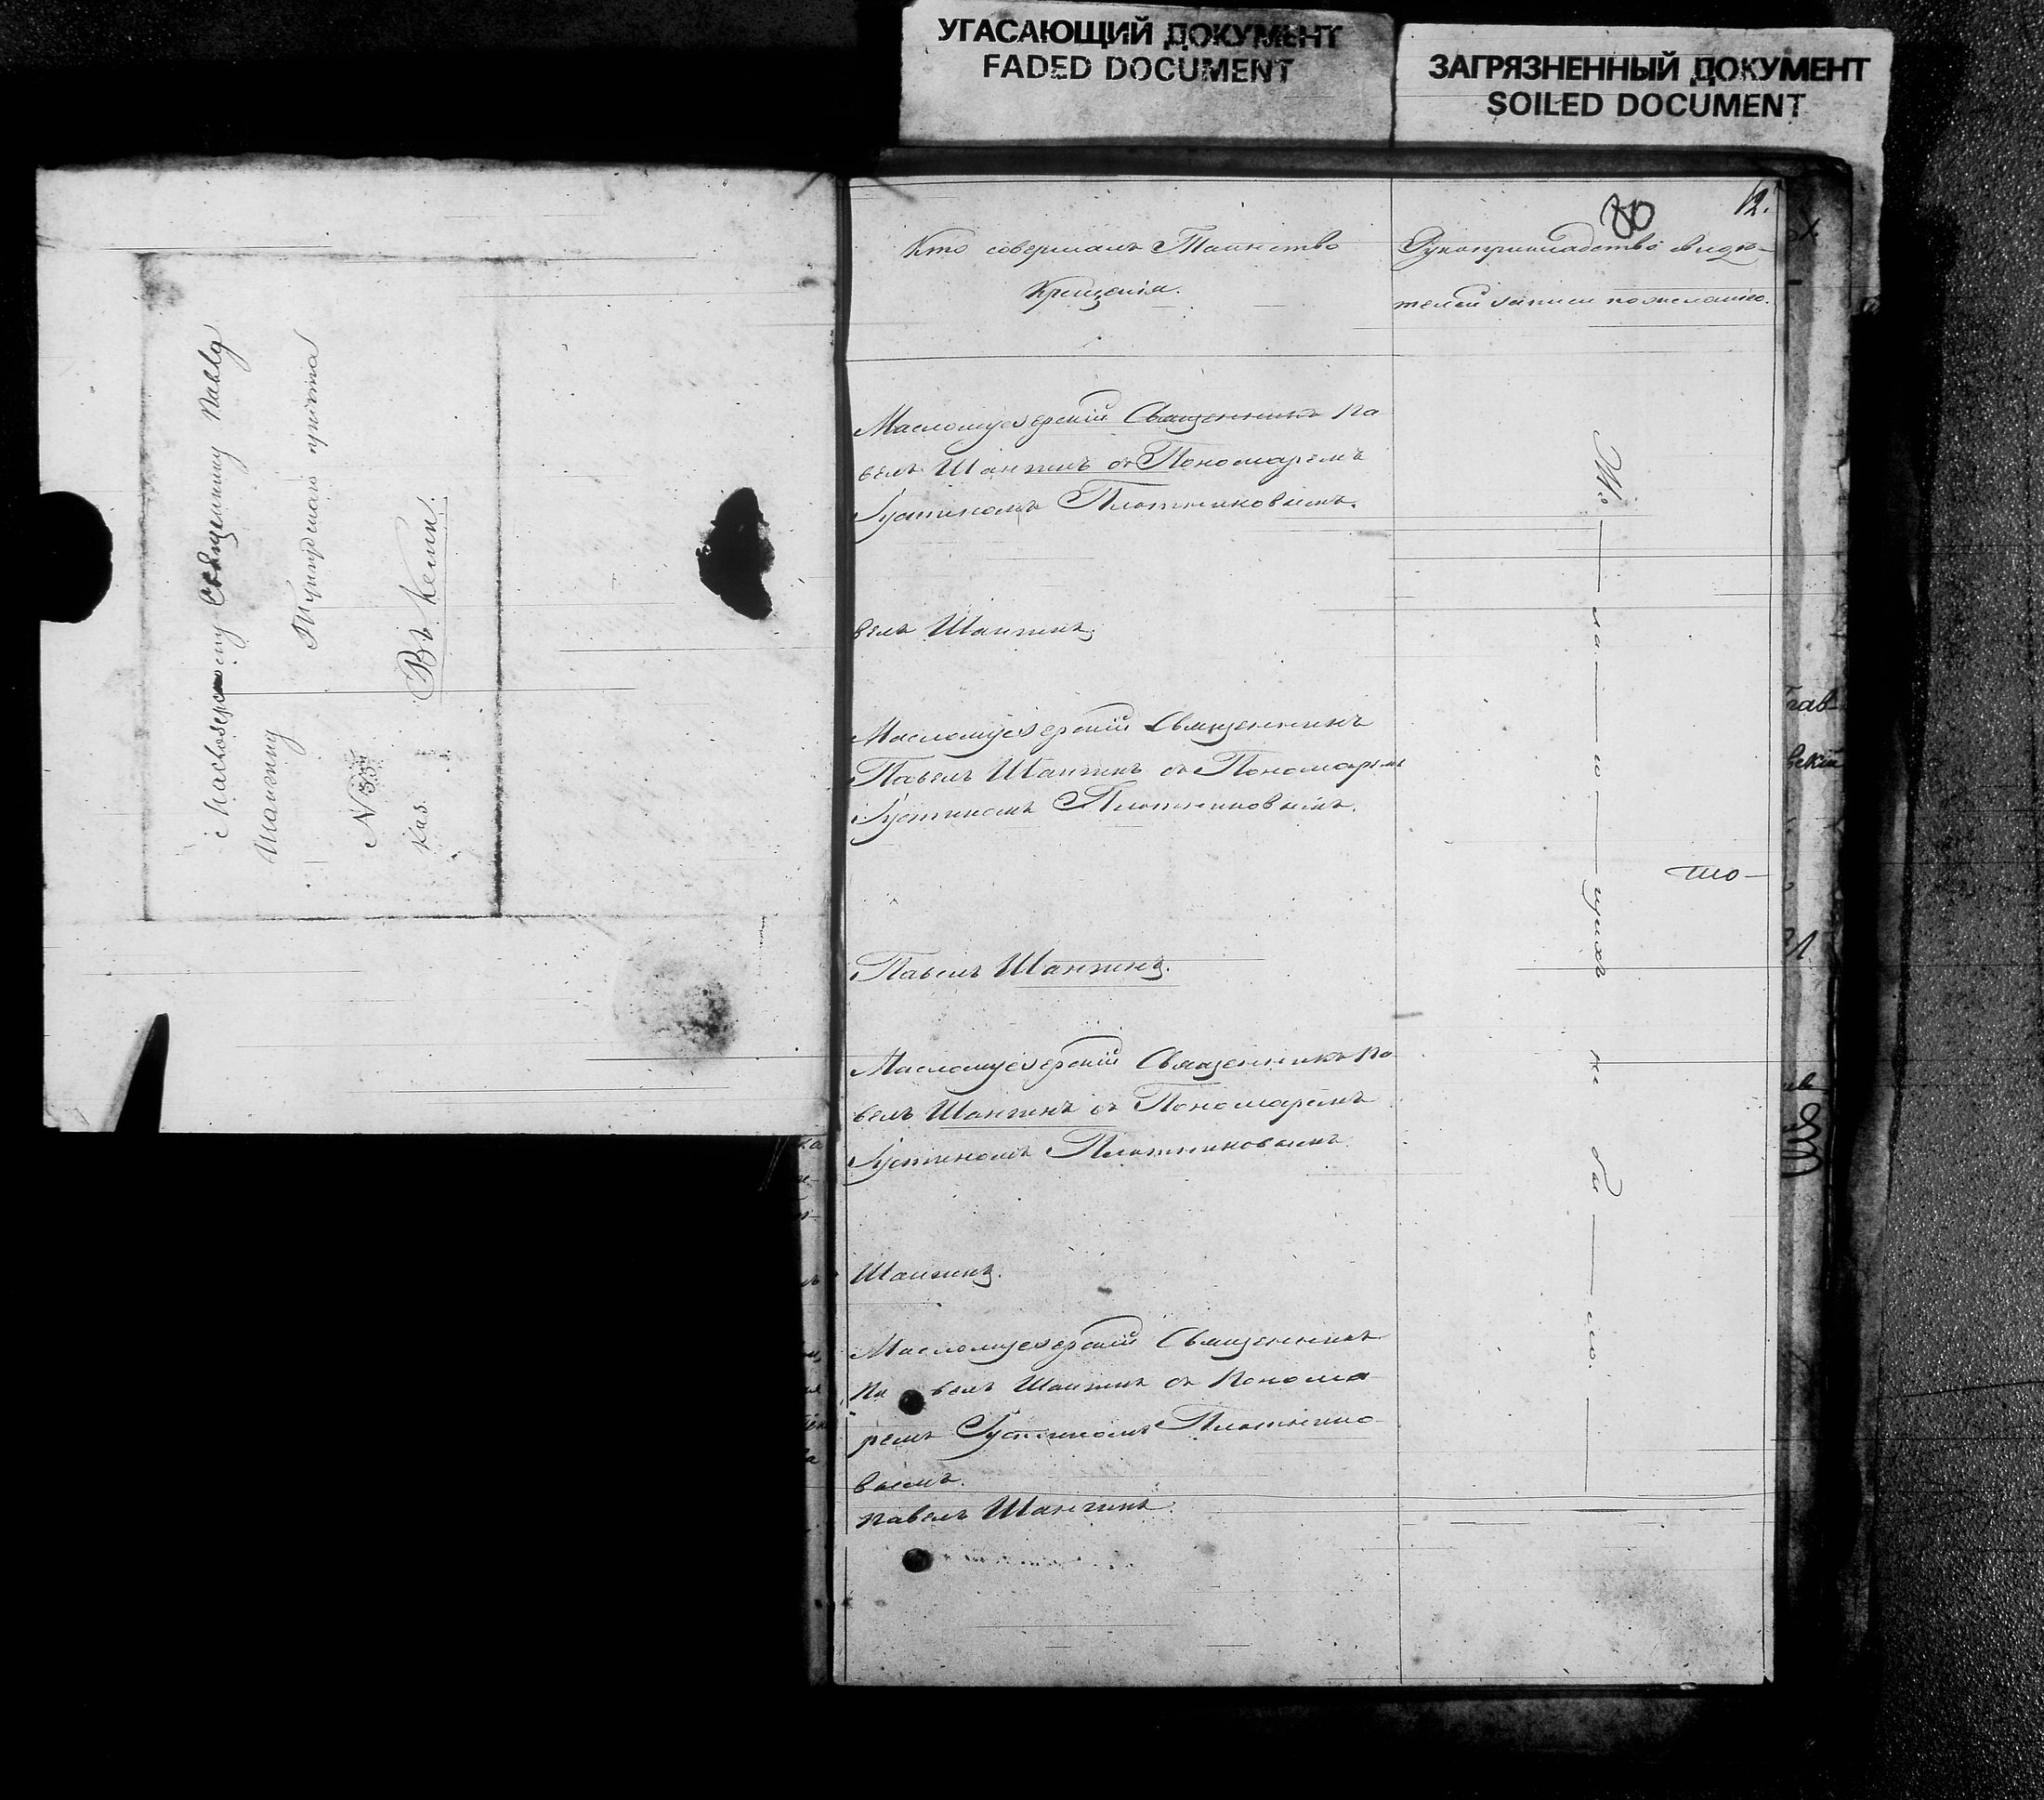 УГАСАЮЩИЙ ДОКУМЕНТ
FADED DOCUMENT
ЗАГРЯЗНЕННЫЙ ДОКУМЕНТ
SOILED DOCUMENT
Священнику Павлу
Шангину
Тунгудскаго
№ 35
Каз.
Въ Кеми.
80
12.
Кто совершалъ Таинство
Крещенія.
Рукоприкладство свидѣ-
телей записи по желанію.
Маслоозерскій Священникъ Па
велъ Шангинъ съ Пономаремъ
Густиномъ Плотниковымъ.
велъ Шангинъ.
Маслоозерскій Священникъ
Павелъ Шангинъ съ Пономаремъ
Густиномъ Плотниковымъ.
Павелъ Шангинъ.
Маслоозерскій Священникъ Па
велъ Шангинъ съ Пономаремъ
Густиномъ Плотниковымъ.
Шангинъ.
Маслоозерскій Священникъ
Па велъ Шангинъ съ Понома
ремъ Густиномъ Плотнико
вымъ.
Павелъ Шангинъ.
Же — ла — ю — щихъ не бы — ло. —